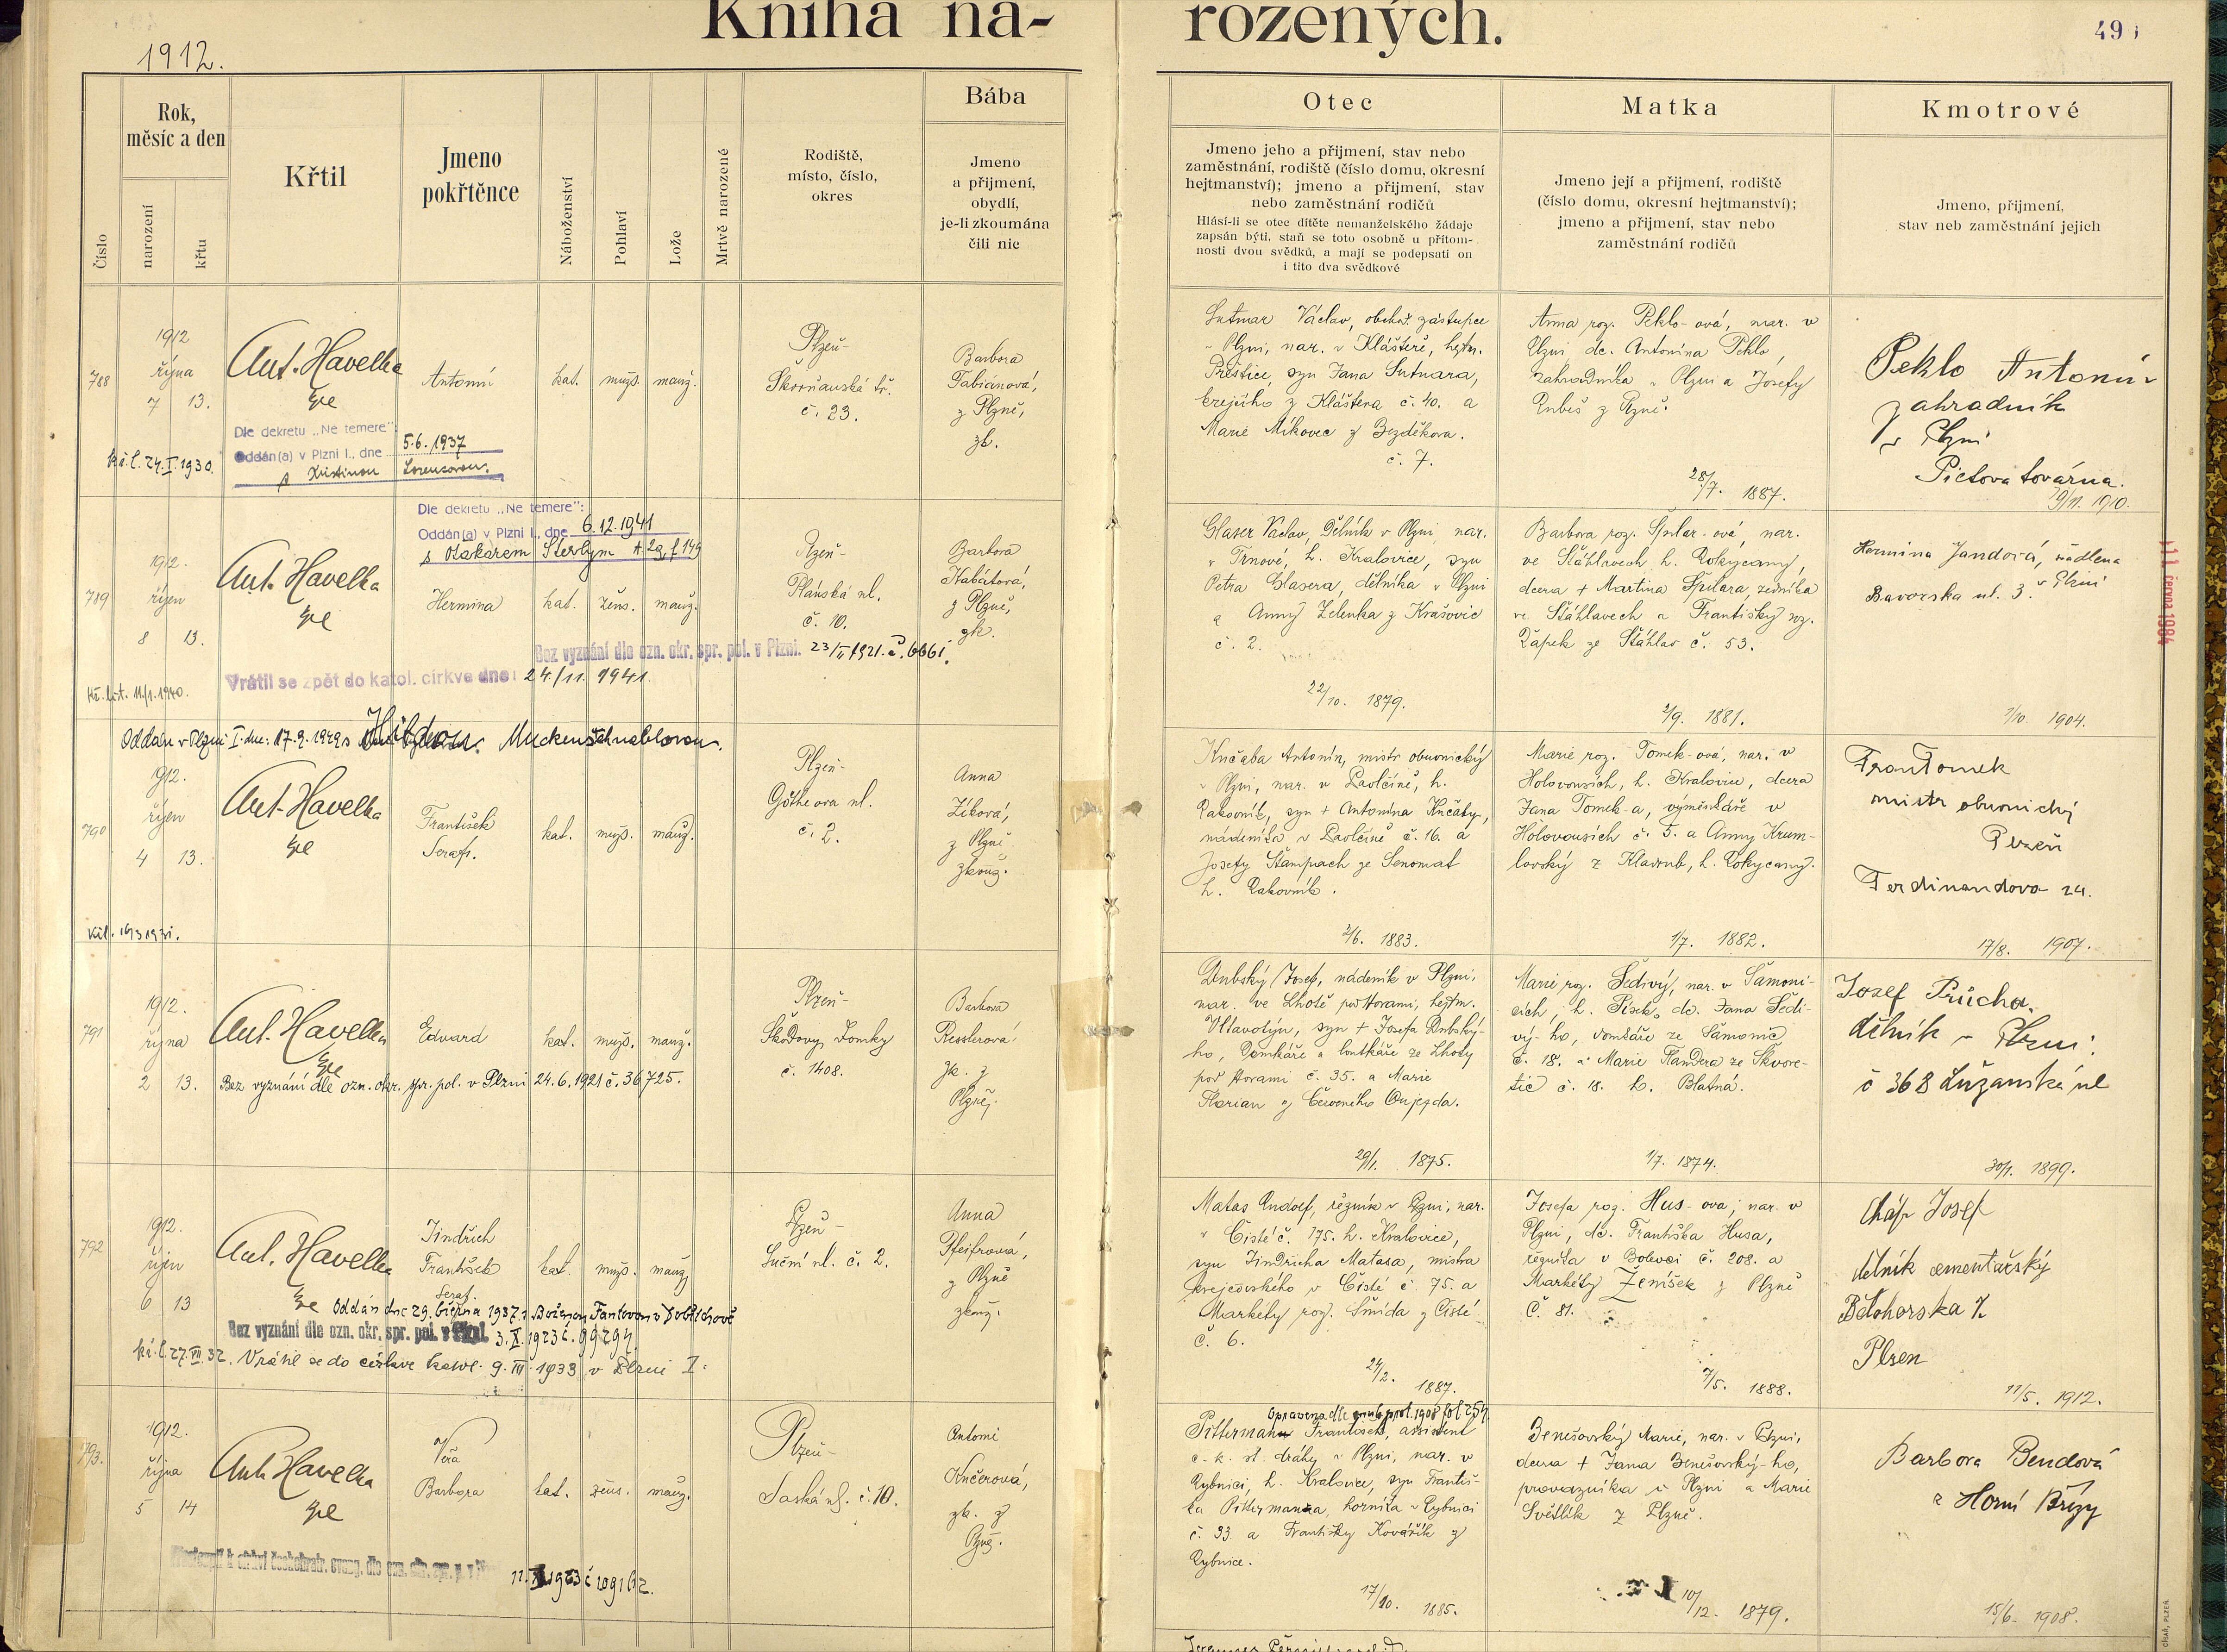 Kniha na-
rozených.
1912.
Číslo
Rok,
měsíc a den
narození
křtu
Křtil
Jmeno
pokřtěnce
Náboženství
Pohlaví
Lože
Mrtvě narozené
Rodiště,
místo, číslo,
okres
Bába
Jmeno
a přijmení,
obydlí,
je-li zkoumána
čili nic
Otec
Jmeno jeho a přijmení, stav nebo
zaměstnání, rodiště (číslo domu, okresní
hejtmanství); jmeno a přijmení, stav
nebo zaměstnání rodičů
Hlásí-li se otec dítěte nemanželského žádaje
zapsán býti, staň se toto osobně u přítom-
nosti dvou svědků, a mají se podepsati on
i tito dva svědkové
Matka
Jmeno její a přijmení, rodiště
(číslo domu, okresní hejtmanství);
jmeno a přijmení, stav nebo
zaměstnání rodičů
Kmotrové
Jmeno, přijmení,
stav neb zaměstnání jejich
788
1912
října
7 13.
Ant. Havelka
Antonín
kat.
muž.
manž.
Plzeň-
Škorňanská tř.
č. 23.
Barbora
Fabiánová,
z Plzně,
zk.
Dle dekretu „Ne temere":
Oddán(a) v Plzni I., dne 5.6.1937
s Kristinou Lorencovou.
kř.l. 24.I.1930.
Sutnar Václav, obchod. zástupce
v Plzni, nar. v Klášteře, hejtm.
Přeštice, syn Jana Sutnara,
krejčího z Kláštera č. 40. a
Marie Míkovec z Bezděkova.
č. 7.
Anna roz. Peklo-ová, nar. v
Plzni, dc. Antonína Pekla,
zahradníka v Plzni a Josefy
Rubeš z Plzně.
28/7. 1887.
Peklo Antonín
zahradník
v Plzni
Pietova továrna.
29/11. 1910.
789
1912.
říjen
8 13.
Ant. Havelka
Dle dekretu „Ne temere":
Oddán(a) v Plzni I., dne 6.12.1941
s Otakarem Sterlym
Hermina
kat.
žens.
manž.
Plzeň-
Plánská ul.
č. 10.
Barbora
Habátová,
z Plzně,
zk.
Bez vyznání dle ozn. okr. spr. pol. v Plzni. 23/II 1921. č. 6661.
Vrátil se zpět do katol. církve dne: 24./11. 1941.
Kř. list. 11/1. 1940.
Glaser Václav, dělník v Plzni, nar.
v Trnové, h. Kralovice, syn
Petra Glasera, dělníka v Plzni
a Anny Zelenka z Krašovic
č. 2.
22/10. 1879.
Barbora roz. Špilar-ová, nar.
ve Štáhlavech h. Rokycany,
dcera + Martina Špilara, zedníka
ve Štáhlavech a Františky roz.
Čapek ze Štáhlav č. 53.
2/9. 1881.
Hermina Jandová, švadlena
v Plzni
Bavorska ul. 3.
1/10. 1904.
11. června 1984
790
Oddán v Plzni I. dne: 17.9.1949 s Muckenschnablovou.
1912.
říjen
4 13.
Ant. Havelka
František
Seraf.
kat.
muž.
manž.
Plzeň-
Götheova ul.
č. 2.
Anna
Zíková,
z Plzně
zkouš.
Kučaba Antonín, mistr obuvnický
v Plzni, nar. v Pavlčíně, h.
Rakovník, syn + Antonína Kučaby,
nádeníka v Pavlčíně č. 16. a
Josefy Štampach ze Senomat
h. Rakovník.
2/6. 1883.
Marie roz. Tomek-ová, nar. v
Holovousích, h. Kralovice, dcera
Jana Tomek-a, výměnkáře v
Holovousích č. 5. a Anny Krum-
lovský z Kladrub, h. Rokycany.
1/7. 1882.
Fran Tomek
mistr obuvnický
Plzeň
Ferdinandova 24.
17/8. 1907.
791
1912.
října
2 13.
Ant. Havelka
Edward
kat.
muž.
manž.
Plzeň-
Škodovy Domky
č. 1408.
Barbora
Resslerová
zk. z
Plzně.
Bez vyznání dle ozn. okr. spr. pol. v Plzni 24.6.1921 č. 36725.
Dubský Josef, nádeník v Plzni,
nar. ve Lhotě pod Horami, hejtm.
Vltavotýn, syn + Josefa Dubský-
ho, domkáře a loutkáře ze Lhoty
pod Horami č. 35. a Marie
Florian z Červeného Oujezda.
29/1. 1875.
Marie roz. Šedivý, nar. v Šamoni-
cích, h. Písek, dc. Jana Šedi-
vý-ho, domkáře ze Šamonic
č. 18. a Marie Flandra ze Škvore-
tic č. 18. h. Blatná.
1/7. 1874.
Josef Průcha.
dělník v Plzni.
č 368 Lužanská ul
30/1. 1899.
792
1912.
říjen
6 13
Ant. Havelka
Jindřich
František
Seraf.
kat.
muž.
manž.
Plzeň-
Luční ul. č. 2.
Anna
Pfeifrová,
z Plzně
zkouš.
Oddán dne 29. března 1937 s Boženou Fantovou v Dobřichově
Bez vyznání dle ozn. okr. spr. pol. v Plzni. 3.X.1923 č. 99294.
kř.l. 27.VII.32. Vrátil se do církve katol. 9.III.1933 v Plzni I.
Matas Rudolf, řezník v Plzni, nar.
v Čisté č. 175. h. Kralovice,
syn Jindřicha Matasa, mistra
krejčovského v Čisté č. 75. a
Markéty roz. Šmída z Čisté
č. 6.
24/2. 1887.
Josefa roz. Hus-ova, nar. v
Plzni, dc. Františka Husa,
řezníka v Bolevci č. 208. a
Markéty Ženíšek z Plzně
č. 81.
7/5. 1888.
Cháp Josef
dělník cementařský
Bělohorska
Plzen
11/5. 1912.
793.
1912.
října
5 14
Ant. Havelka
Věra
Barbora
kat.
žens.
manž.
Plzeň-
Saská ul. č. 10.
Antonie
Kučerová,
zk. z
Plzně.
11. 1923 č 109162.
Opraveno dle snub. prot. 1908 fol 254.
Pittermann František, assistent
c. k. st. dráhy v Plzni, nar. v
Rybnici, h. Kralovice, syn Františ-
ka Pittermanna, horníka v Rybnici
č. 93 a Františky Kovářík z
Rybnice.
17/10. 1885.
Benešovský Marie, nar. v Plzni,
dcera + Jana Benešovský-ho,
provazníka v Plzni a Marie
Světlík z Plzně.
10/12. 1879.
Barbora Bendová
z Horní Břízy
15/6. 1908.
CÍSAŘ, PLZEŇ.